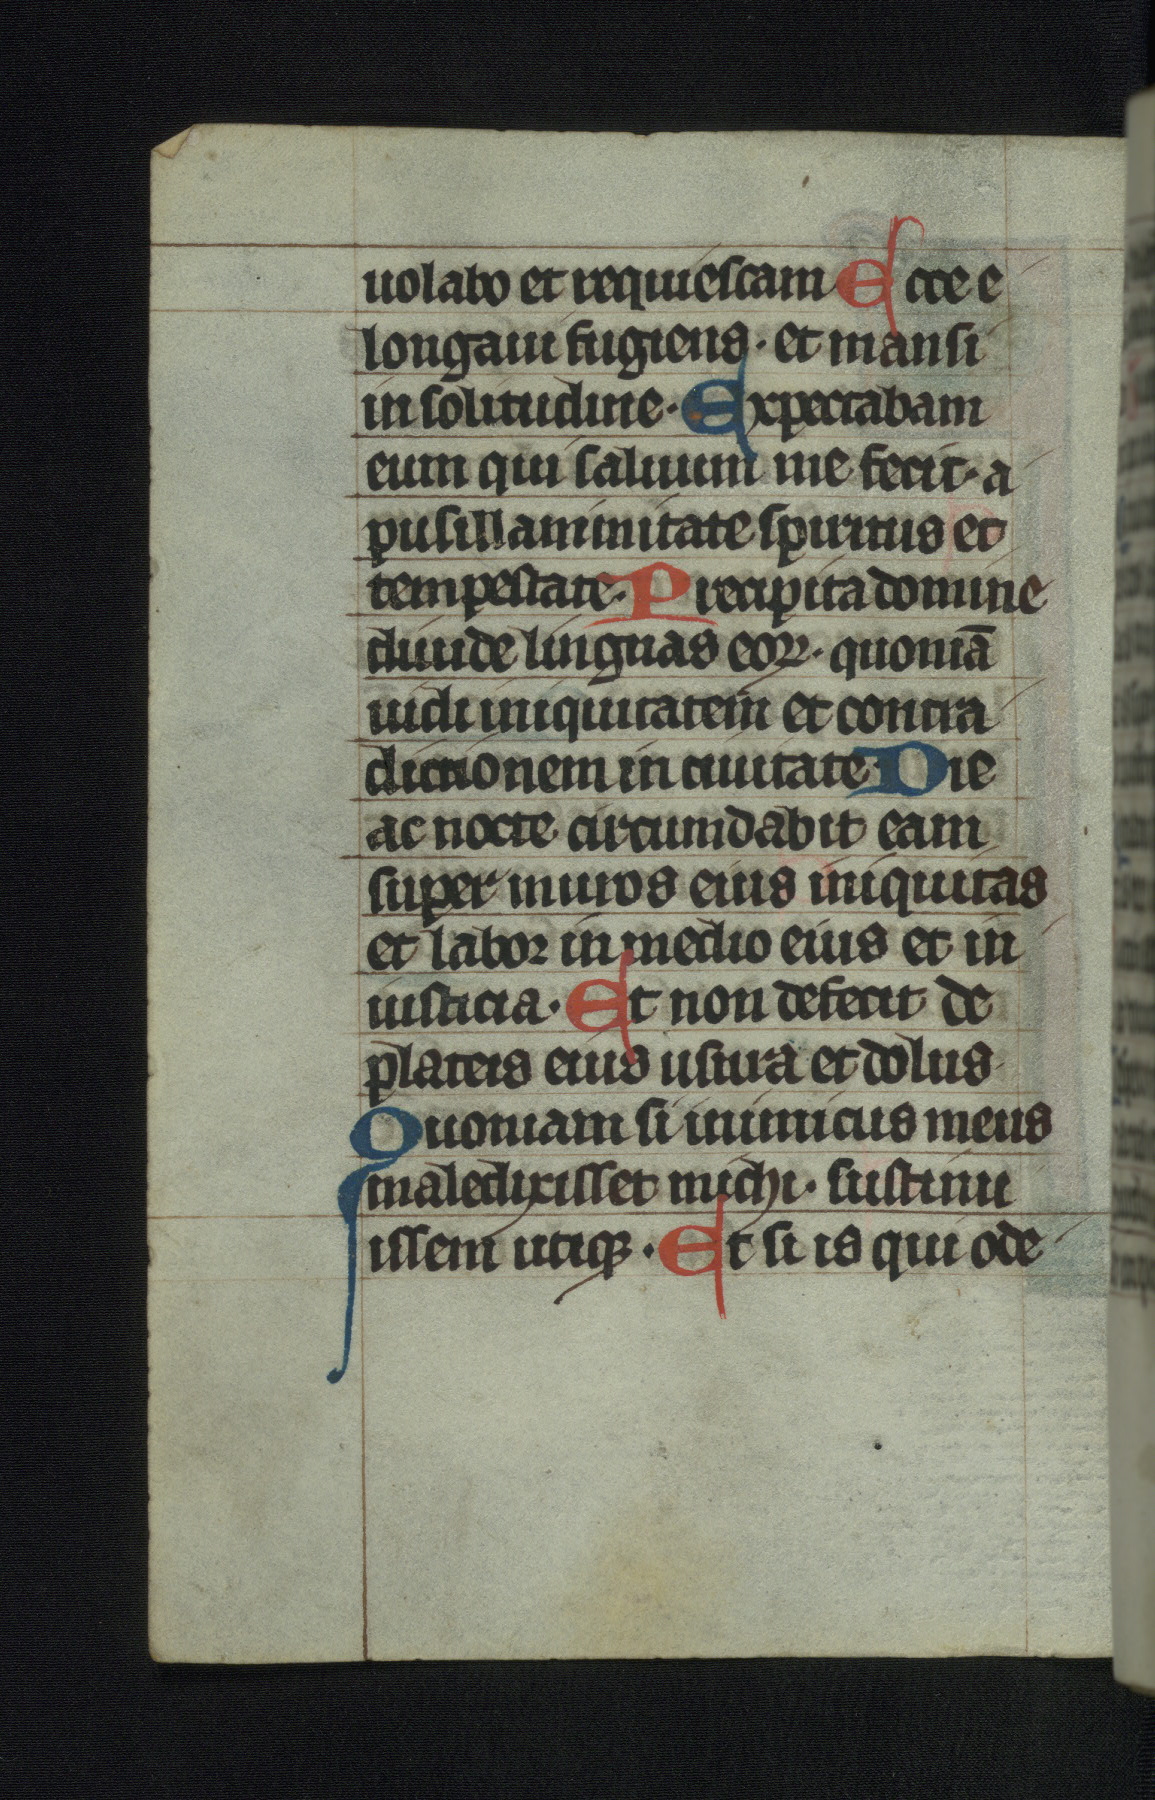 uolabo et requiescam Ecce e
longaui fugiens · et mansi
in solitudine · Expectabam
eum qui saluum me fecit · a
pusillanimitate spiritus et
tempestate · Precipita domine
diuide linguas eoꝝ · quoniā
uidi iniquitatem et contra
dictionem in ciuitate · Die
ac nocte circumdabit eam
super muros eius iniquitas
et labor in medio eius et in
iusticia · Et non defecit de
plateis eius usura et dolus
Quoniam si inimicus meus
maledixisset michi · sustinu
issem utiqꝫ · Et si is qui ode